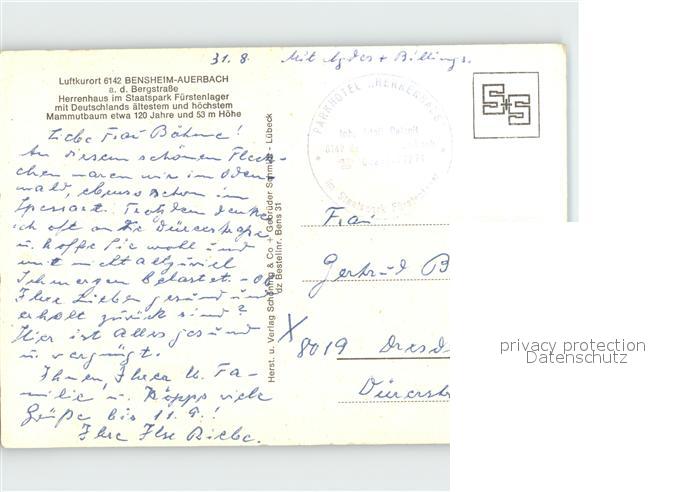 31. 8. Mit Agdes + Billings.
Luftkurort 6142 BENSHEIM-AUERBACH
a. d. Bergstraße
Herrenhaus im Staatspark Fürstenlager
mit Deutschlands ältestem und höchstem
Mammutbaum etwa 120 Jahre und 53 m Höhe
Liebe Frau Böhme!
An diesem schönen Fleck-
chen waren wir im Oden-
wald, ebenso schon im
Spessart. Trotzdem denke
ich oft an die Dürerstraße
u. hoffe Sie wohl und
mit nicht allzuviel
Schmerzen belastet. - Ob
Ihre Lieben gesund und
erholt zurück sind?
Hier ist Alles gesund
u. vergnügt.
Ihnen, Ihrer lb. Fa-
milie u. Köpps viele
Grüße bis 11. 9.!
Ihre Ilse Riebe.
Herst. u. Verlag Schöning & Co + Gebrüder Schmidt - Lübeck
dz Bestellnr. Bens 31
PARKHOTEL HERRENHAUS
Im Staatspark Fürstenlager
S+S
Frau
Gertrud B
X 8019 Dresd
Dürerst
privacy protection
Datenschutz